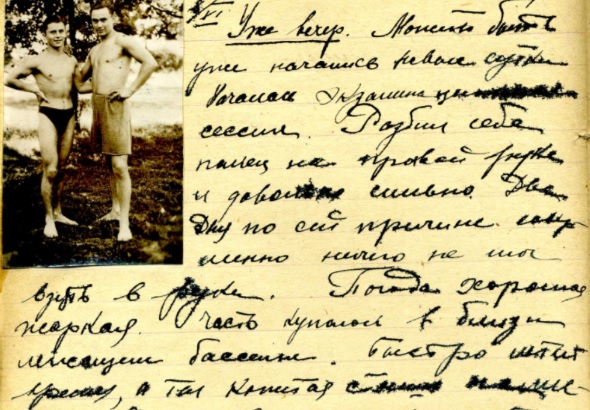 /VI
Уже вечер. Может быть
уже начались новые сутки
Началась экзамина
сессия. Разбил себе
палец на правой руке
и довольно сильно. Два
дня по сей причине совер
менно ничего не мог
взять в руки. Погода хорошая
жаркая. Часть купалось в близи
лежащем бассейне. Быстро
время, а ты